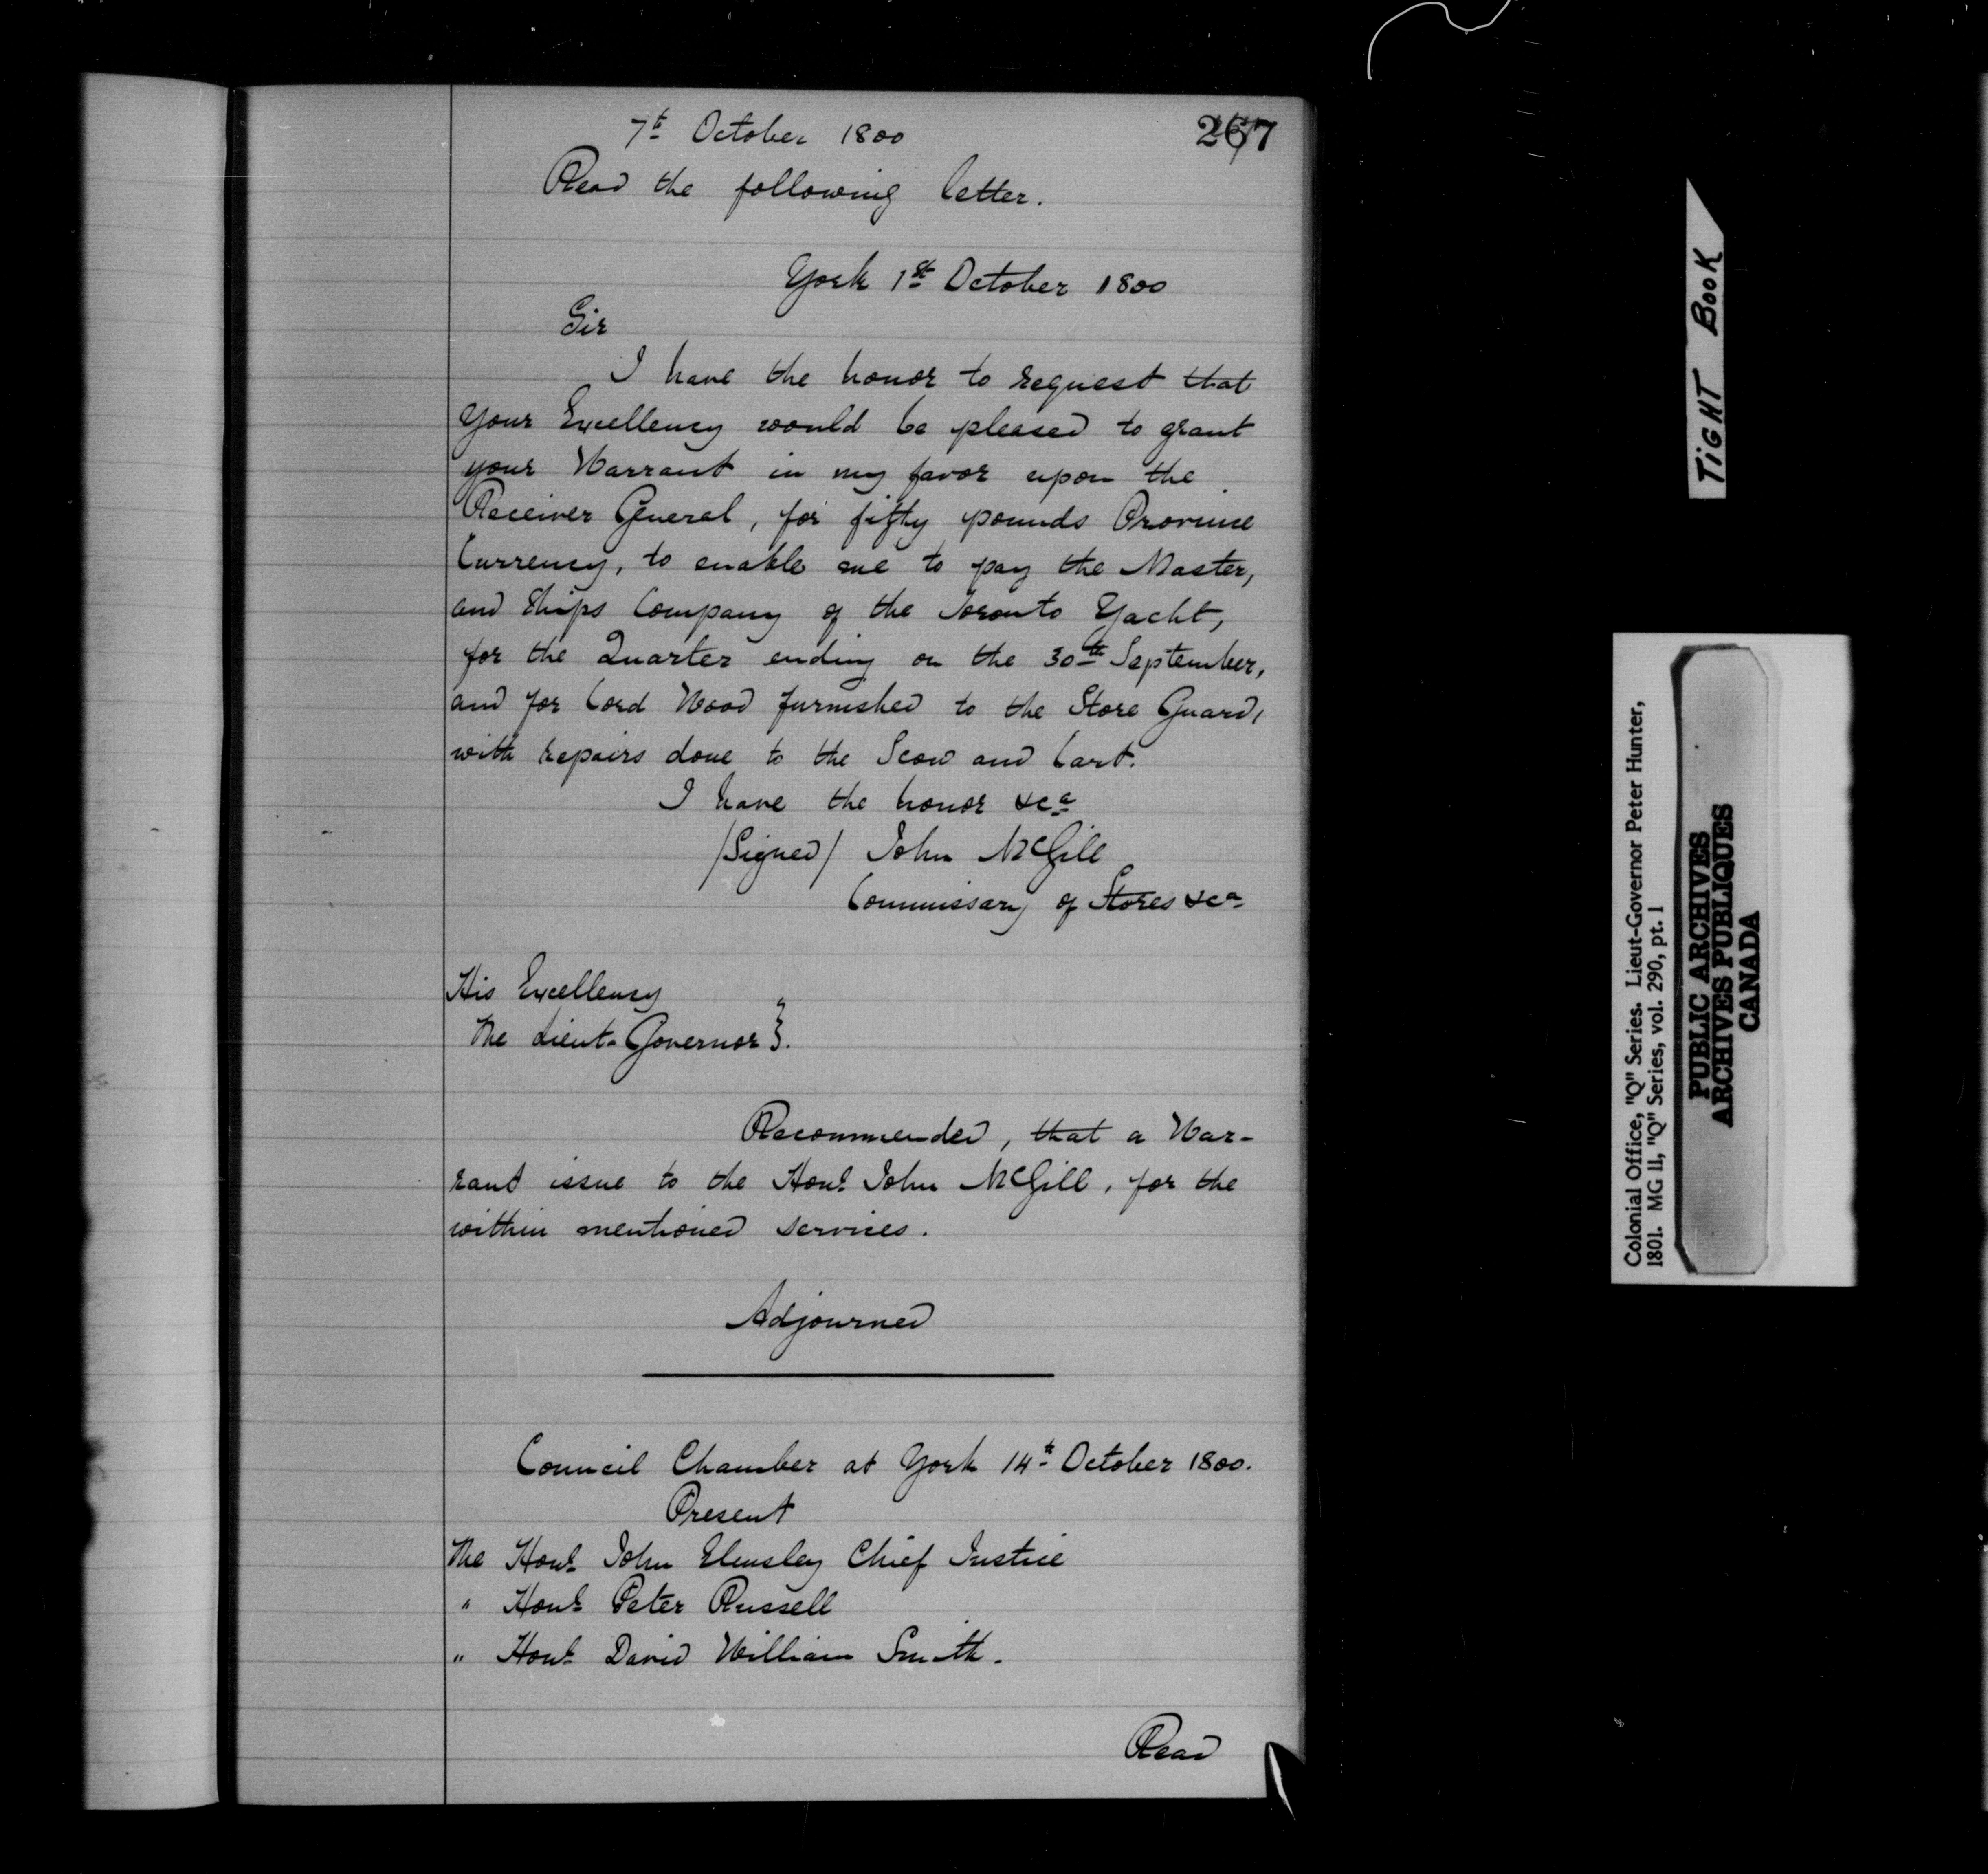 7th October 1800
267
Read the following letter.
York 1st October 1800
Sir
I have the honor to request that
Your Excellency would be pleased to grant
your Warrant in my favor upon the
Receiver General, for fifty pounds Province
Currency, to enable me to pay the Master,
and Ships Company of the Toronto Yacht,
for the Quarter ending on the 30th September,
and for Cord Wood furnished to the Store Guard,
with repairs done to the Scow and Cart.
I have the honor &ca
/Signed/ John McGill
Commissary of Stores &ca
His Excellency
The Lieut. Governor }.
Recommended, that a War-
rant issue to the Honl. John McGill, for the
within mentioned services.
Adjourned
Council Chamber at York 14th October 1800.
Present
The Honl. John Elmsley Chief Justice
" Honl. Peter Russell
" Honl. David William Smith.
Read
TIGHT BOOK
Colonial Office, "Q" Series. Lieut-Governor Peter Hunter,
1801. MG 11, "Q" Series, vol. 290, pt. 1
PUBLIC ARCHIVES
ARCHIVES PUBLIQUES
CANADA